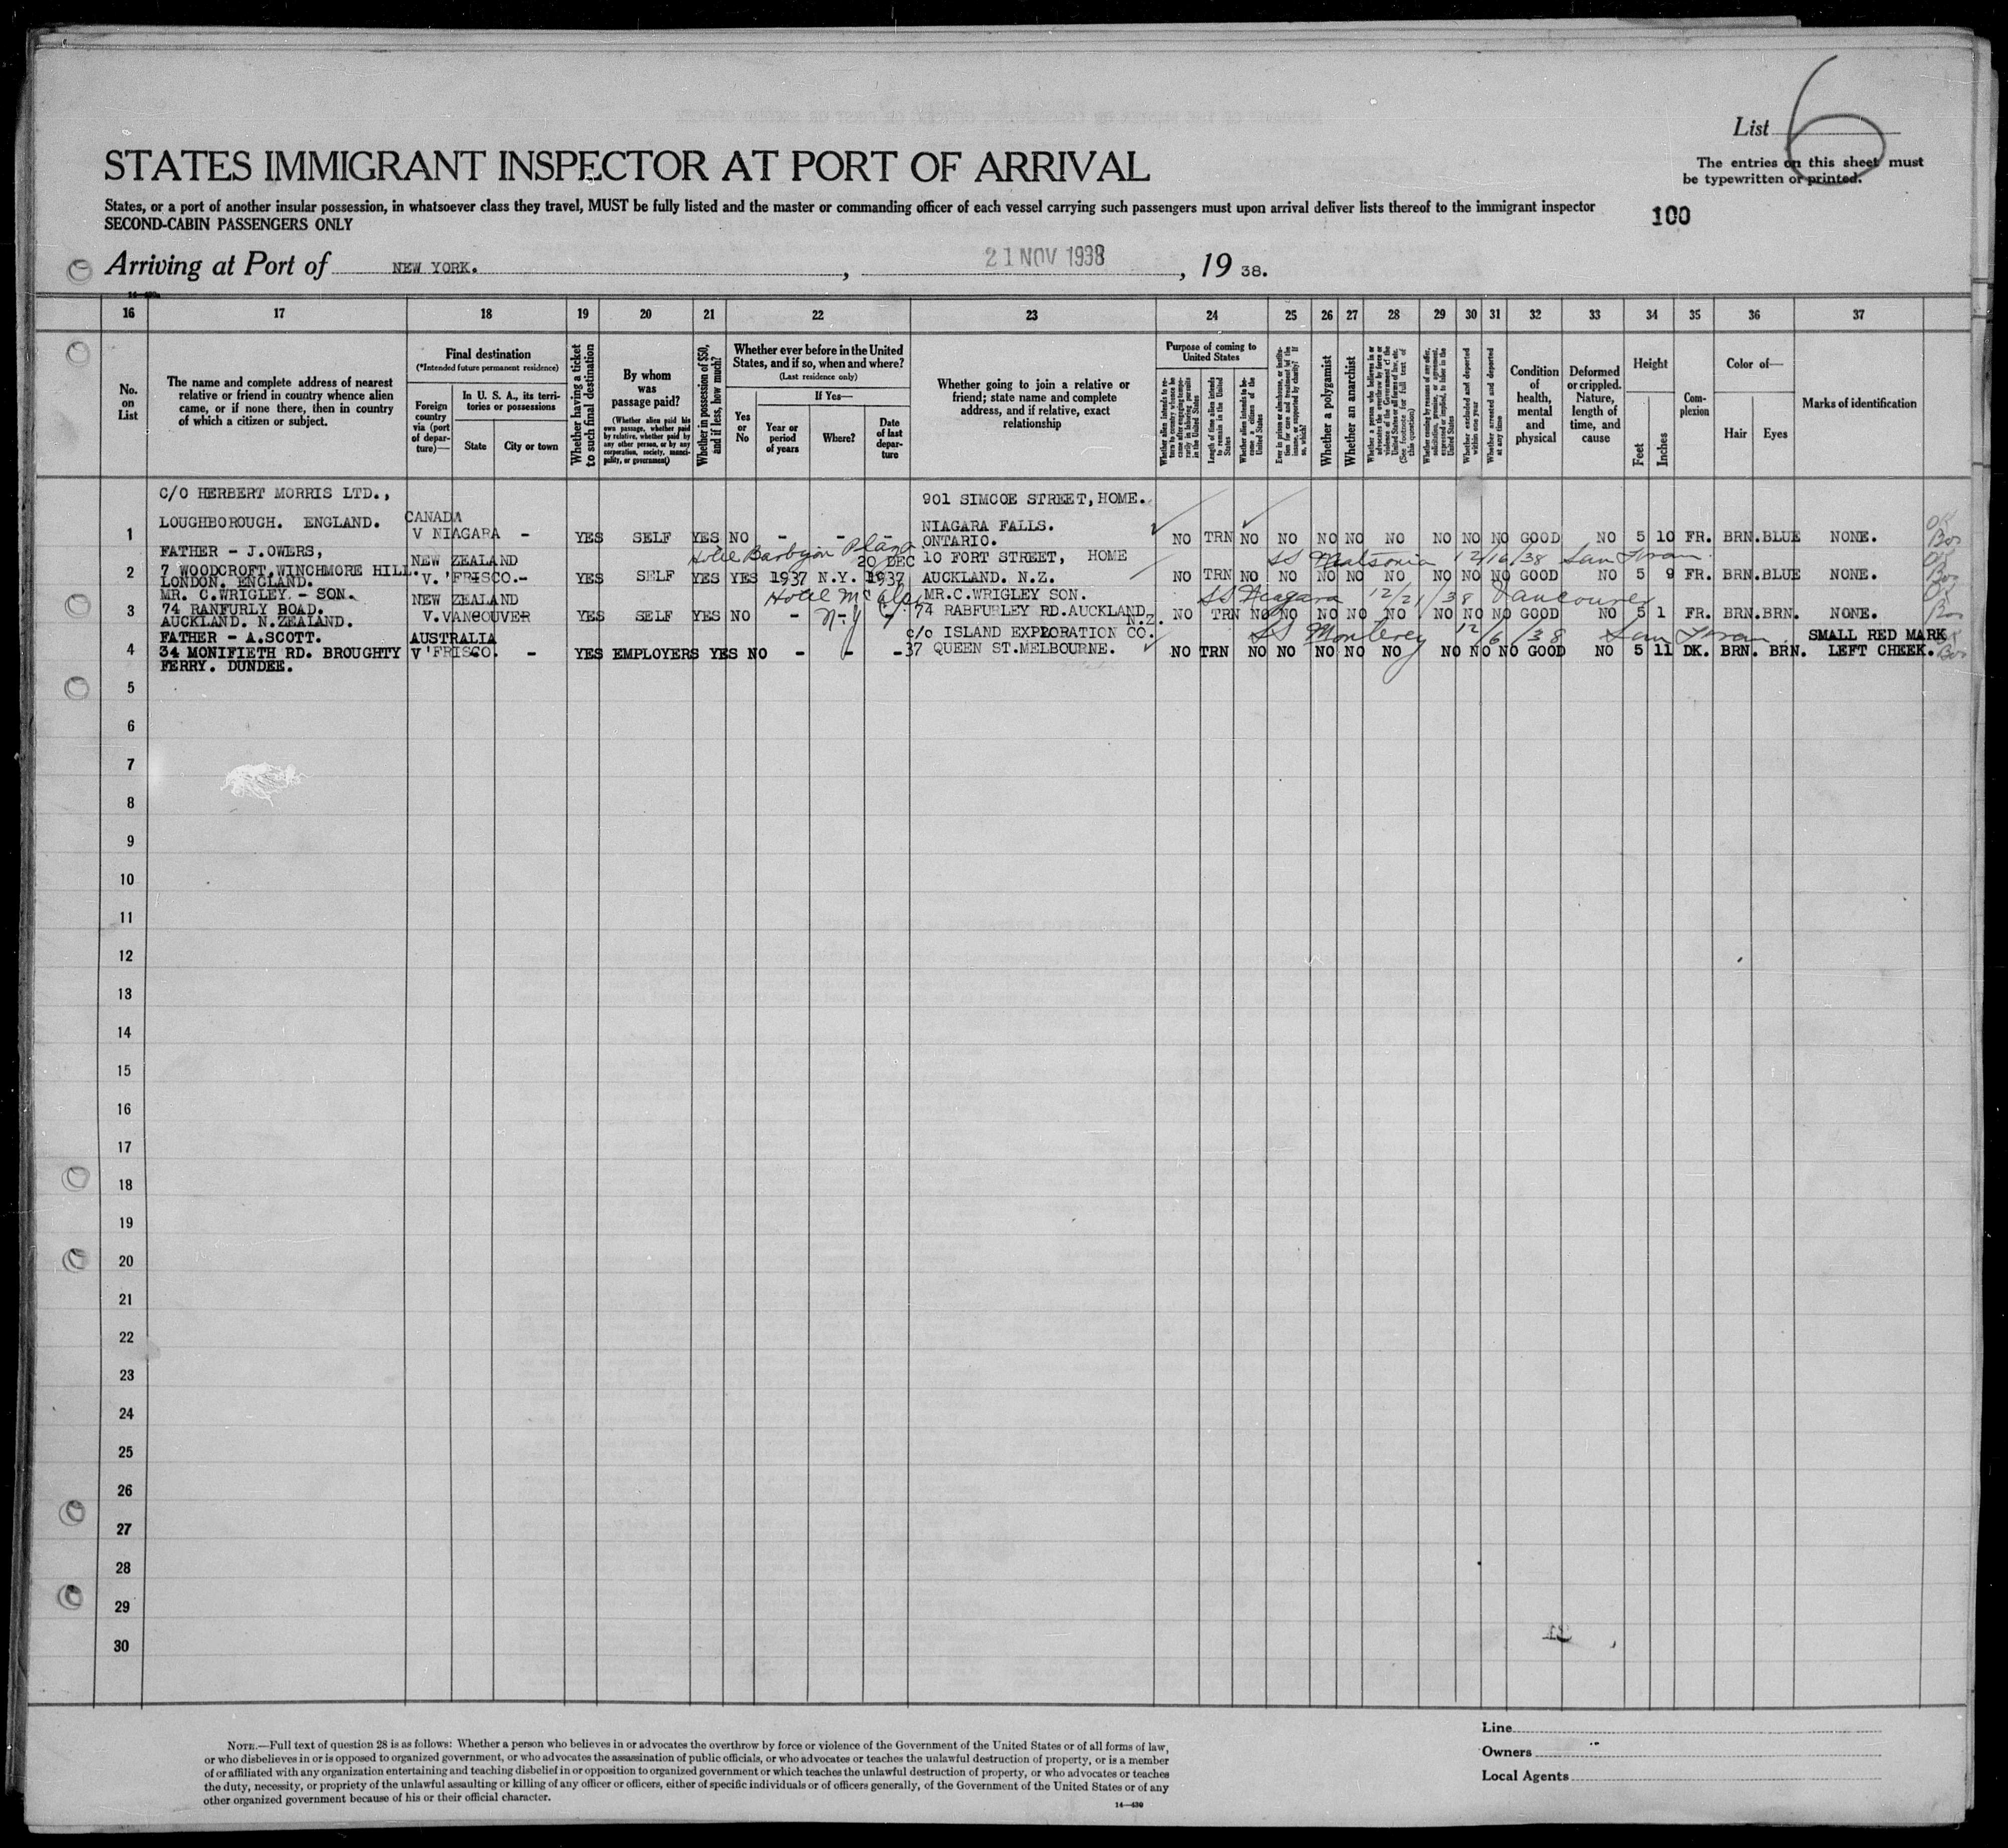 List 6
The entries on this sheet must
be typewritten or printed.
STATES IMMIGRANT INSPECTOR AT PORT OF ARRIVAL
States, or a port of another insular possession, in whatsoever class they travel, MUST be fully listed and the master or commanding officer of each vessel carrying such passengers must upon arrival deliver lists thereof to the immigrant inspector
SECOND-CABIN PASSENGERS ONLY
100
Arriving at Port of NEW YORK. , 21 NOV 1938 , 19 38.
16 17 18 19 20 21 22 23 24 25 26 27 28 29 30 31 32 33 34 35 36 37
No. on List
The name and complete address of nearest
relative or friend in country whence alien
came, or if none there, then in country
of which a citizen or subject.
Final destination
(*Intended future permanent residence)
Foreign country via (port of departure)—
In U. S. A., its territories or possessions
State
City or town
Whether having a ticket to such final destination
By whom was passage paid?
(Whether alien paid his own passage, whether paid by relative, whether paid by any other person, or by any corporation, society, municipality, or government)
Whether in possession of $50, and if less, how much?
Whether ever before in the United
States, and if so, when and where?
(Last residence only)
Yes or No
If Yes—
Year or period of years
Where?
Date of last departure
Whether going to join a relative or
friend; state name and complete
address, and if relative, exact
relationship
Purpose of coming to United States
Length of time alien intends to remain in the United States
Whether alien intends to become a citizen of the United States
Whether a polygamist
Whether an anarchist
Whether excluded and deported within one year
Whether arrested and deported at any time
Condition of health, mental and physical
Deformed or crippled. Nature, length of time, and cause
Height
Feet
Inches
Complexion
Color of—
Hair
Eyes
Marks of identification
C/O HERBERT MORRIS LTD., 901 SIMCOE STREET, HOME.
LOUGHBOROUGH. ENGLAND. CANADA NIAGARA FALLS.
1 V NIAGARA - YES SELF YES NO - - - ONTARIO. NO TRN NO NO NO NO NO NO NO NO GOOD NO 5 10 FR. BRN. BLUE NONE.
Hotel Barbizon Plaza
FATHER - J.OWERS, NEW ZEALAND 20 DEC 10 FORT STREET, HOME SS Matsonia 12/16/38 San Fran.
2 7 WOODCROFT, WINCHMORE HILL. V. 'FRISCO.- YES SELF YES YES 1937 N.Y. 1937 AUCKLAND. N.Z. NO TRN NO NO NO NO NO NO NO NO GOOD NO 5 9 FR. BRN. BLUE NONE.
LONDON. ENGLAND.
MR. C.WRIGLEY - SON. NEW ZEALAND MR.C.WRIGLEY SON. SS Niagara 12/21/38 Vancouver
3 74 RANFURLY ROAD. V.VANCOUVER YES SELF YES NO - N.Y 74 RABFURLEY RD.AUCKLAND N.Z. NO TRN NO NO NO NO NO NO NO NO GOOD NO 5 1 FR. BRN. BRN. NONE.
AUCKLAND. N.ZEALAND.
FATHER - A.SCOTT. AUSTRALIA c/o ISLAND EXPLORATION CO. SS Monterey 12/6/38 San Fran. SMALL RED MARK
4 34 MONIFIETH RD. BROUGHTY V 'FRISCO. - YES EMPLOYERS YES NO - - - 37 QUEEN ST.MELBOURNE. NO TRN NO NO NO NO NO NO NO NO GOOD NO 5 11 DK. BRN. BRN. LEFT CHEEK.
FERRY. DUNDEE.
5
6
7
8
9
10
11
12
13
14
15
16
17
18
19
20
21
22
23
24
25
26
27
28
29
30
NOTE.—Full text of question 28 is as follows: Whether a person who believes in or advocates the overthrow by force or violence of the Government of the United States or of all forms of law,
or who disbelieves in or is opposed to organized government, or who advocates the assassination of public officials, or who advocates or teaches the unlawful destruction of property, or is a member
of or affiliated with any organization entertaining and teaching disbelief in or opposition to organized government or which teaches the unlawful destruction of property, or who advocates or teaches
the duty, necessity, or propriety of the unlawful assaulting or killing of any officer or officers, either of specific individuals or of officers generally, of the Government of the United States or of any
other organized government because of his or their official character.
14—430
Line
Owners
Local Agents